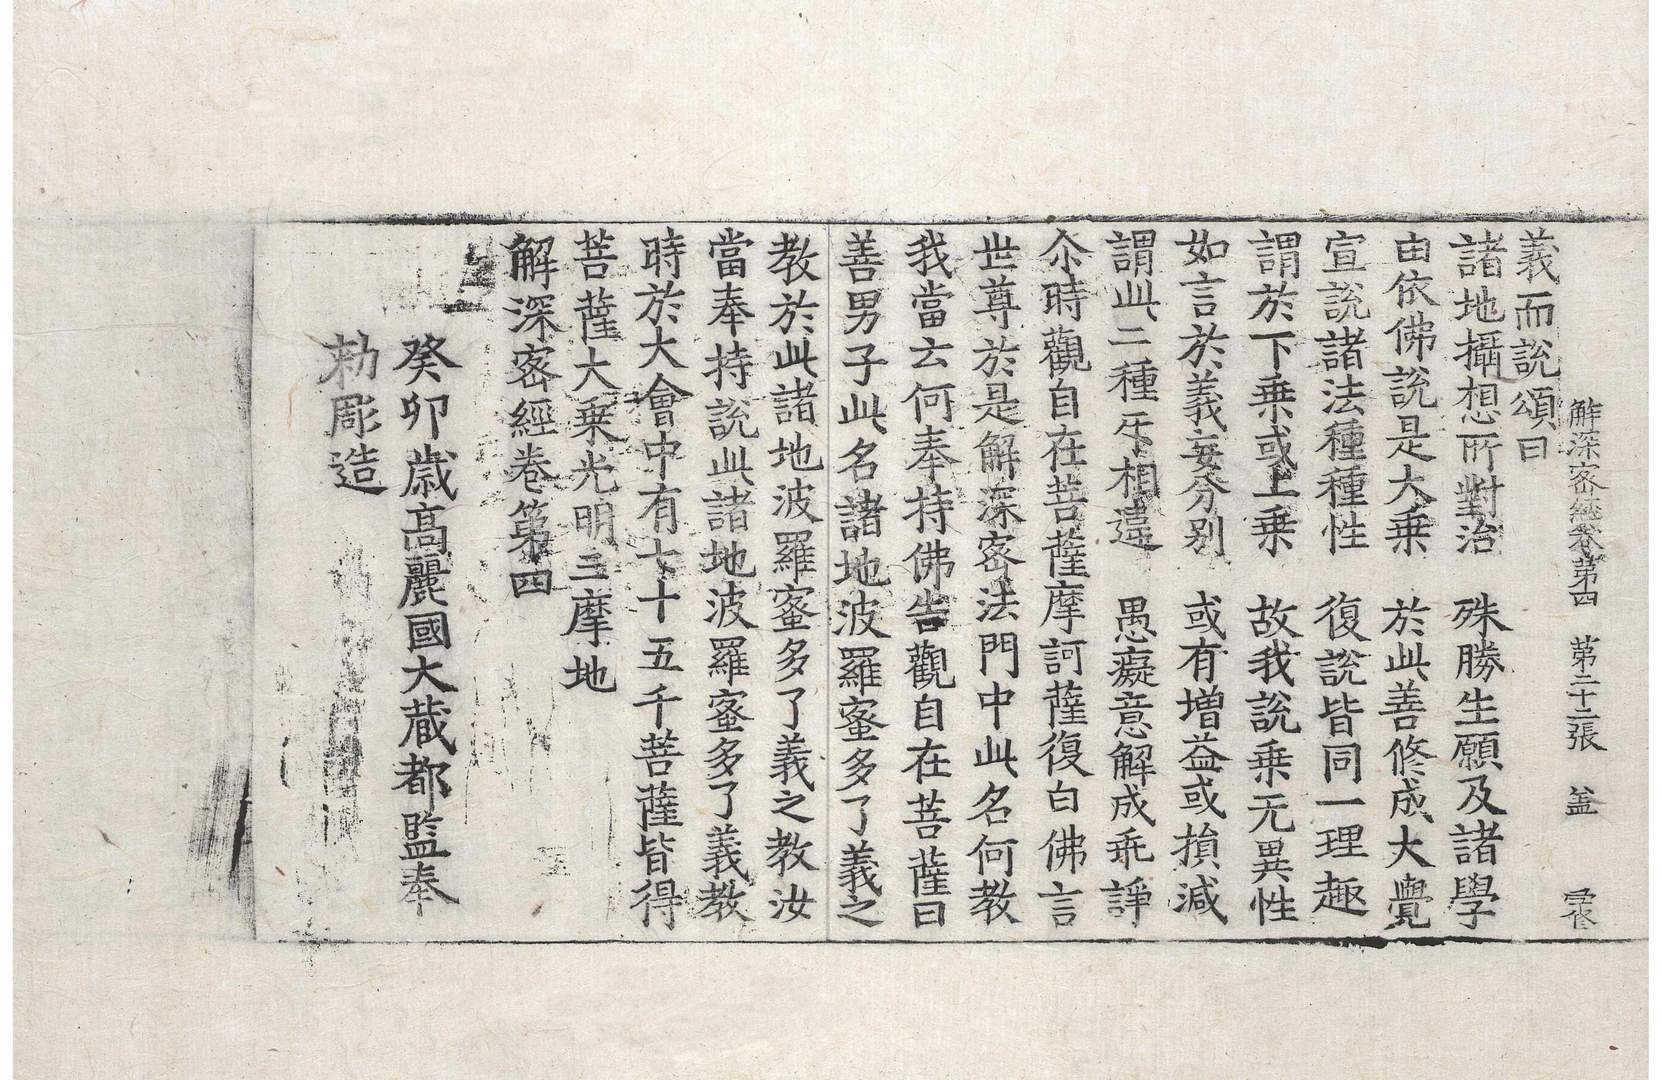 解深密經卷第四　第二十二張　盖
義而說頌曰
諸地攝想所對治　殊勝生願及諸學
由依佛說是大乗　於此善修成大覺
宣說諸法種種性　復說皆同一理趣
謂於下乗或上乗　故我說乗无異性
如言於義妄分别　或有增益或損減
謂此二種互相違　愚癡意解成乖諍
尒時觀自在菩薩摩訶薩復白佛言
世尊於是解深密法門中此名何教
我當云何奉持佛告觀自在菩薩曰
善男子此名諸地波羅蜜多了義之
教於此諸地波羅蜜多了義之教汝
當奉持說此諸地波羅蜜多了義教
時於大會中有七十五千菩薩皆得
菩薩大乗光明三摩地
解深密經卷第四
癸卯歲高麗國大藏都監奉
勑彫造